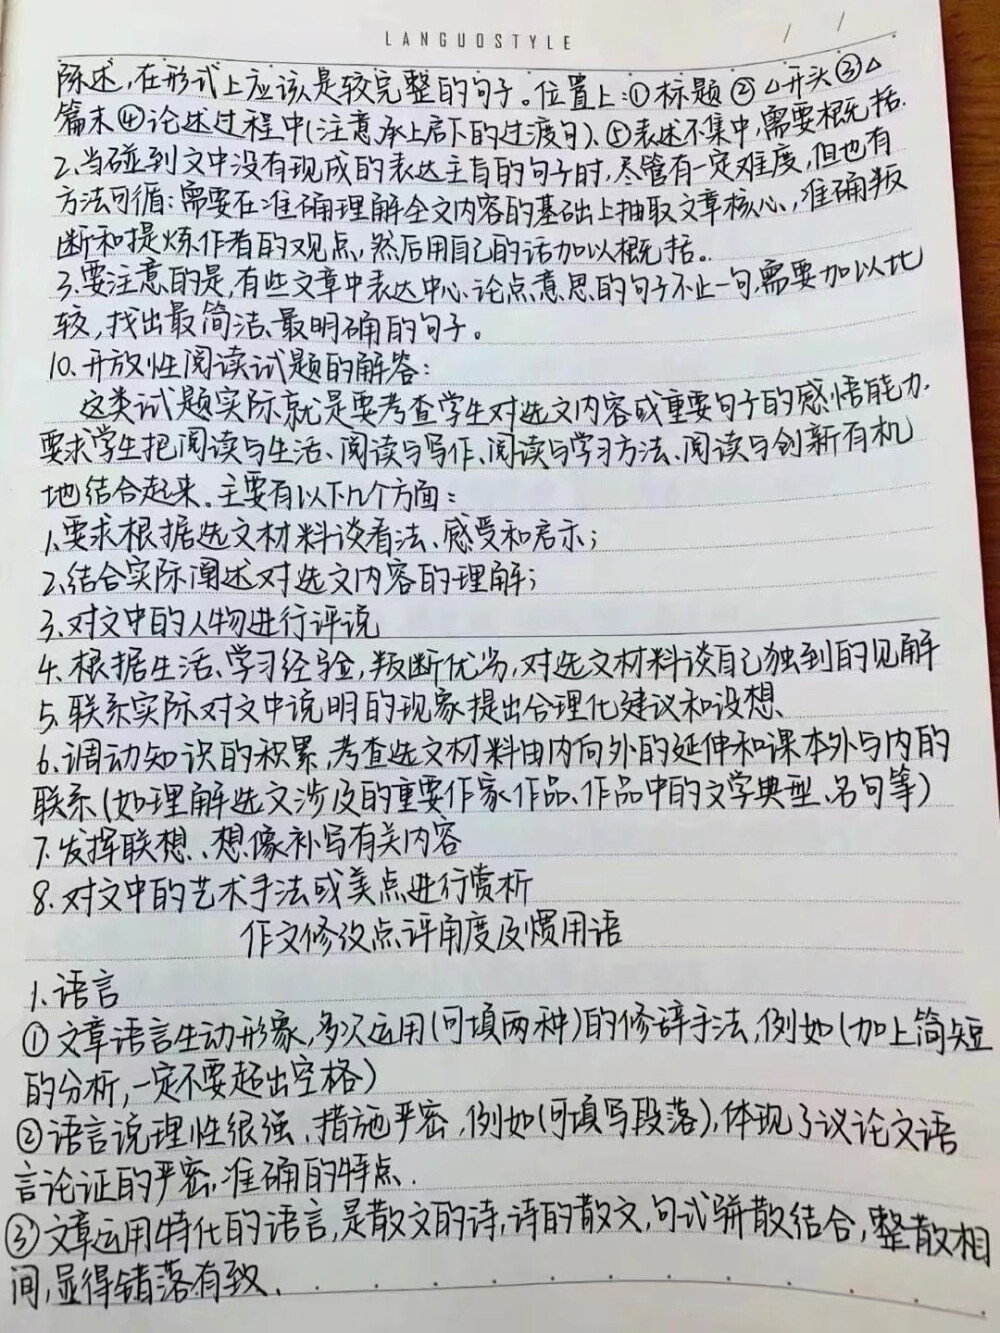 LANGUOSTYLE
/ /
陈述,在形式上应该是较完整的句子。位置上:①标题②△开头③△
篇末④论述过程中(注意承上启下的过渡句)、⑤表述不集中,需要概括.
2.当碰到文中没有现成的表达主旨的句子时,尽管有一定难度,但也有
方法可循:需要在准确理解全文内容的基础上抽取文章核心,准确判
断和提炼作者的观点,然后用自己的话加以概括。
3.要注意的是,有些文章中表达中心论点意思的句子不止一句,需要加以比
较,找出最简洁、最明确的句子。
10.开放性阅读试题的解答:
这类试题实际就是要考查学生对选文内容或重要句子的感悟能力.
要求学生把阅读与生活、阅读与写作、阅读与学习方法、阅读与创新有机
地结合起来.主要有以下几个方面:
1.要求根据选文材料谈看法、感受和启示;
2.结合实际阐述对选文内容的理解;
3.对文中的人物进行评说
4.根据生活、学习经验,判断优劣,对选文材料谈自己独到的见解
5.联系实际对文中说明的现象提出合理化建议和设想、
6.调动知识的积累,考查选文材料由内向外的延伸和课本外与内的
联系(如理解选文涉及的重要作家作品、作品中的文学典型、名句等)
7.发挥联想、想像补写有关内容
8.对文中的艺术手法或美点进行赏析
作文修改点评角度及惯用语
1.语言
①文章语言生动形象,多次运用(可填两种)的修辞手法,例如(加上简短
的分析,一定不要超出空格)
②语言说理性很强、措施严密,例如(可填写段落),体现了议论文语
言论证的严密,准确的特点.
③文章运用特化的语言,是散文的诗,诗的散文,句式骈散结合,整散相
间,显得错落有致.